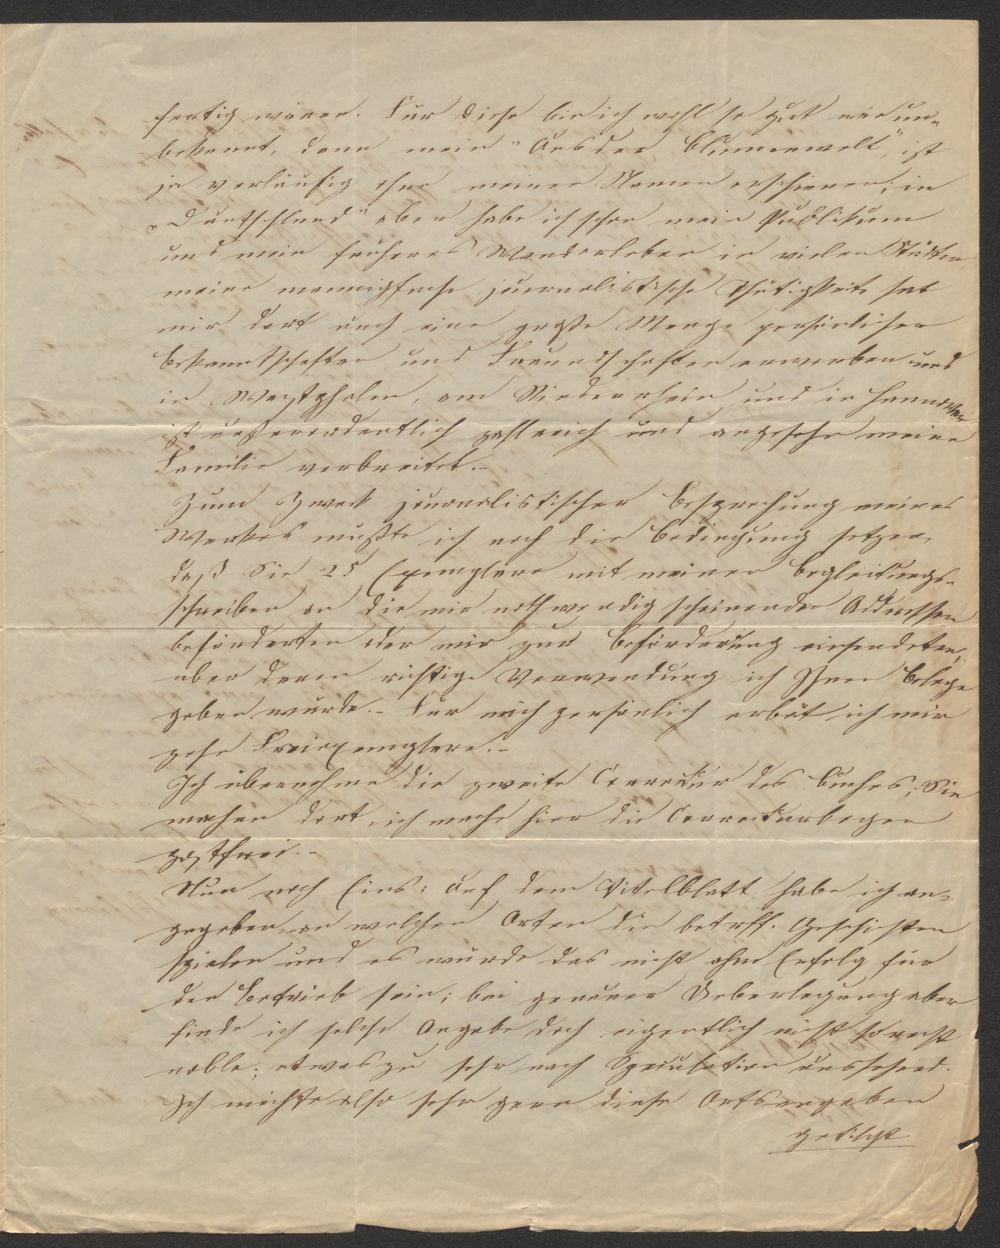 fertig wären. Für diese bin ich wohl so gut wie un-
bekannt, denn mein "Aus der Blumenwelt", ist
ja vorläufig ohne meinen Namen erschienen; in
"Deutschland" aber habe ich schon mein Publikum
und mein früheres Wanderleben in vielen Städten
meine mannigfache journalistische Thätigkeit hat
mir dort auch eine große Menge persönlicher
Bekanntschaften und Freundschaften erworben und
in Westphalen, am Niederrhein und in Hannover
ist außerordentlich zahlreich und angesehn meine
Familie verbreitet.-
Zum Zweck journalistischer Besprechung meines
Werkes müßte ich noch die Bedingung setzen,
daß Sie 25 Exemplare mit meinen Begleitungs-
schreiben an die mir nothwendig scheinenden Addressen
beförderten oder mir zur Beförderung einsendeten,
über deren richtige Verwendung ich Ihnen Belege
geben würde.- Für mich persönlich erbät ich mir
zehn Freiexemplare.-
Ich übernehme die zweite Correktur des Buches; Sie
machen dort, ich mache hier die Correkturbogen
postfrei.-
Nun noch Eins: auf dem Titelblatt habe ich an-
gegeben, an welchen Orten die betreff. Geschichten
spielen und es würde das nicht ohne Erfolg für
den Betrieb sein; bei genauer Ueberlegung aber
finde ich solche Angabe doch eigentlich nicht so recht
noble; etwas zu sehr nach Speculation aussehend.
Ich möchte also sehr gern diese Ortsangaben
getilgt